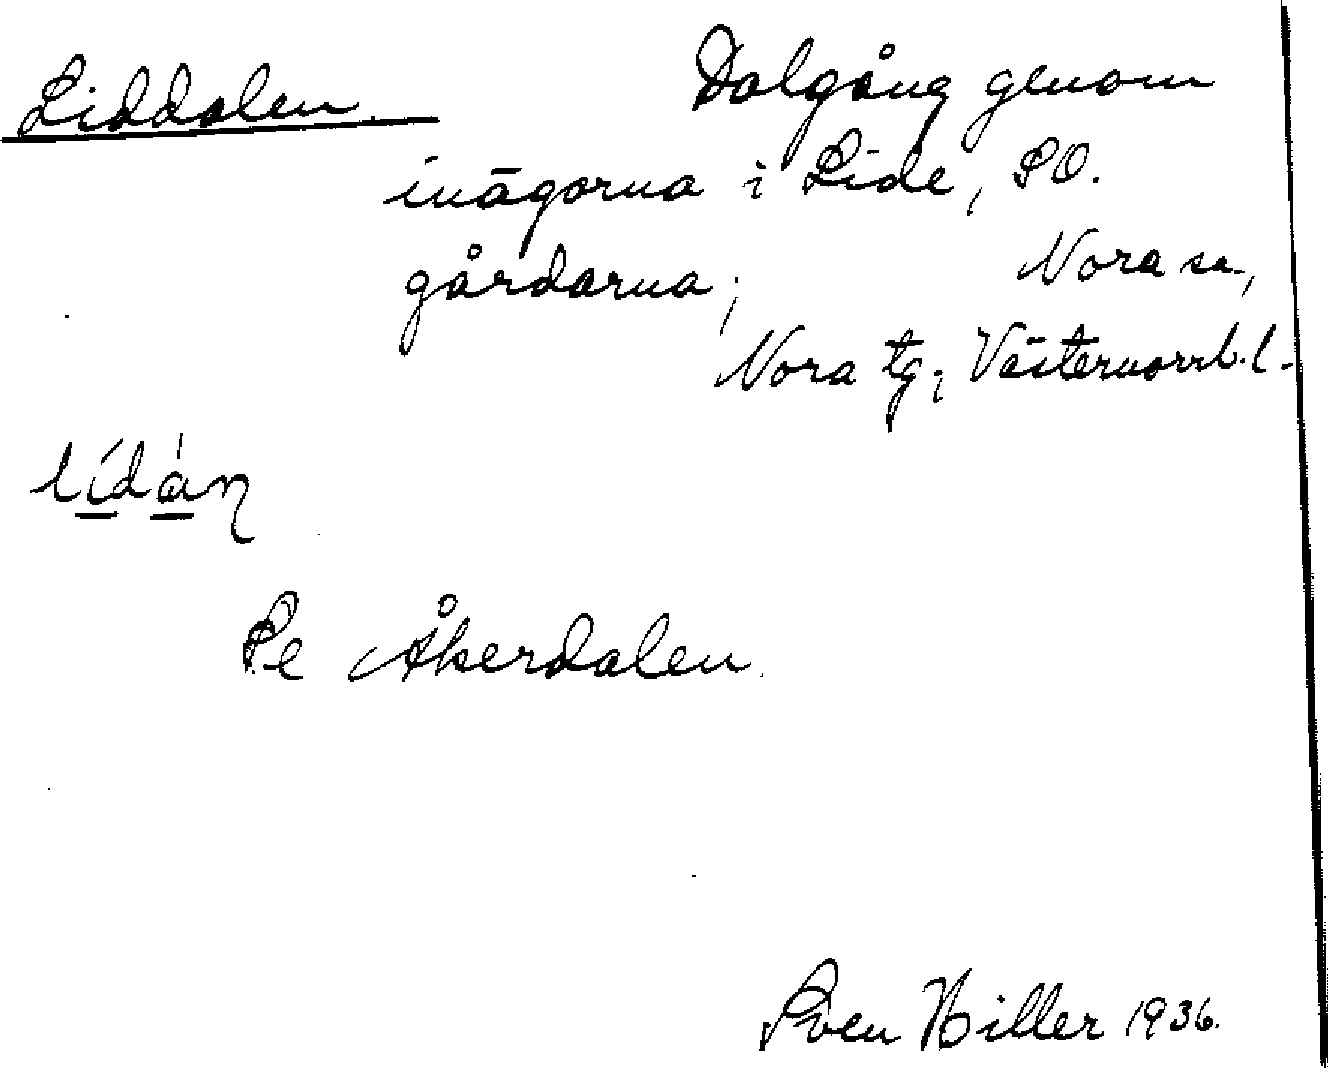 Liddalen
Dalgång genom
inägorna i Lide, SO.
gårdarna; Nora sn,
Nora tg; Västernorrl. l.
lídán
Se Åkerdalen.
Sven Hiller 1936.